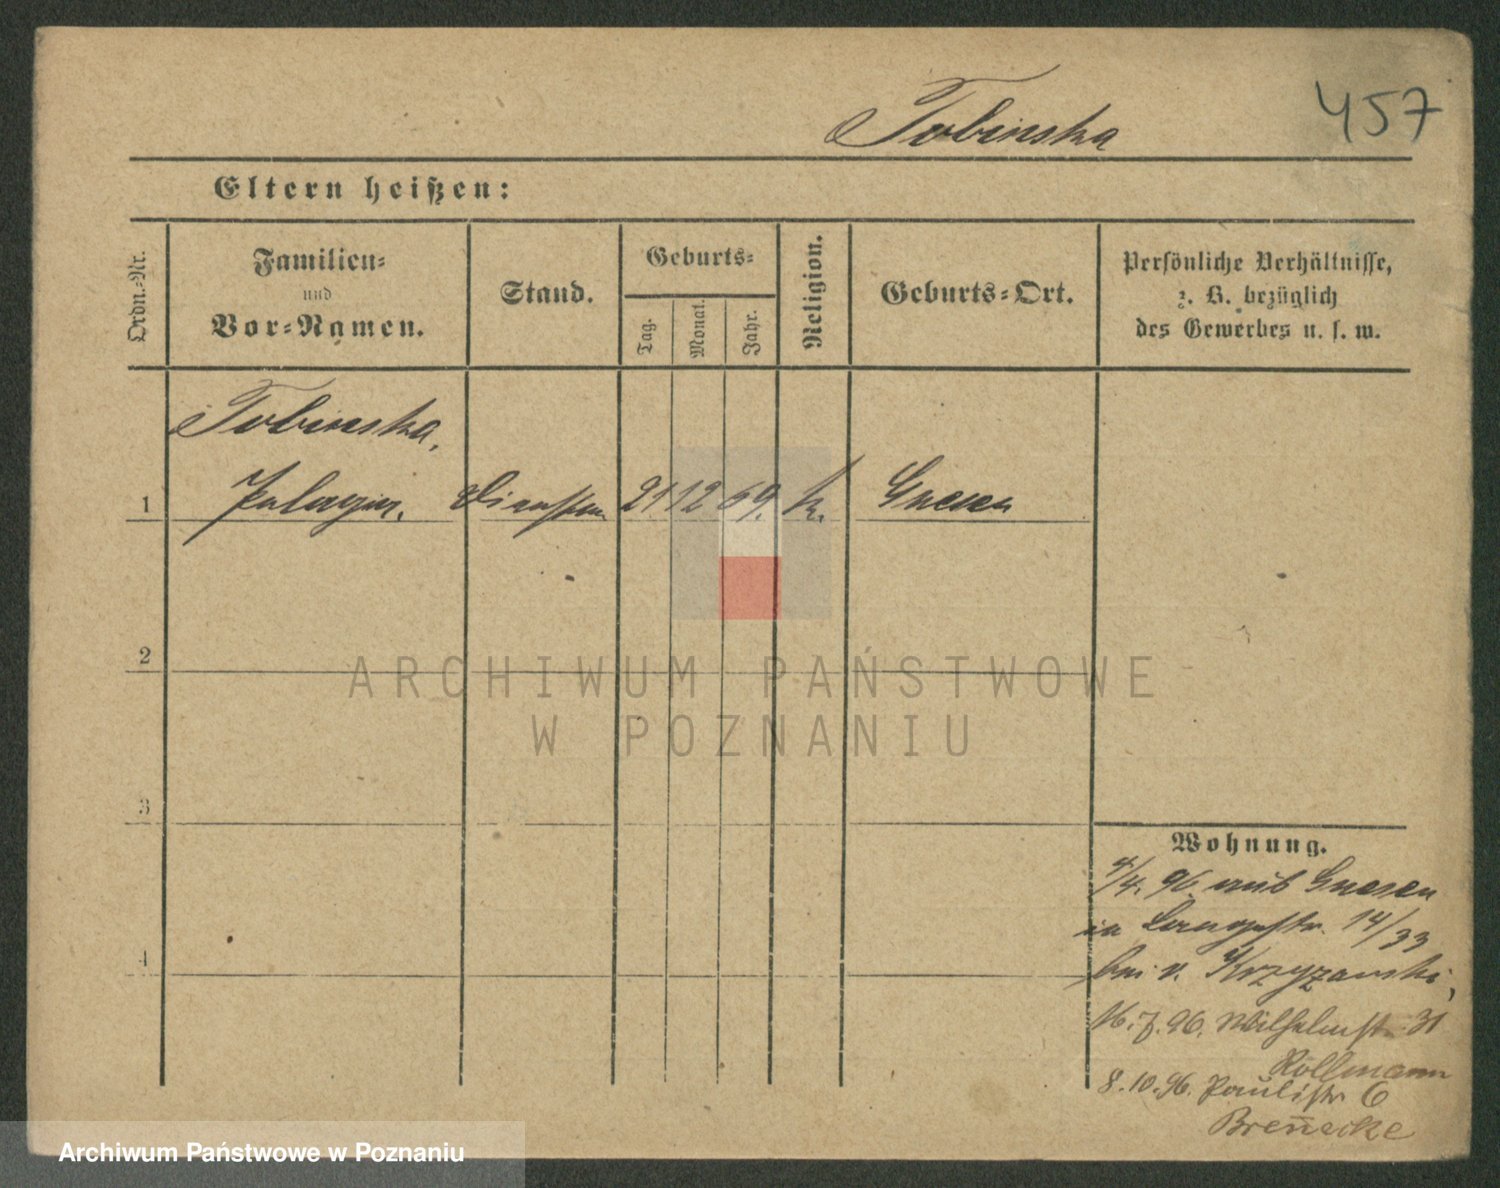 457
Tobinska
Eltern heißen:
Ordn.-Nr.
Familien-
und
Vor-Namen.
Stand.
Geburts-
Tag.
Monat.
Jahr.
Religion.
Geburts-Ort.
Persönliche Verhältnisse,
z. B. bezüglich
des Gewerbes u. s. w.
Tobinska,
1 Pelagia. 21 12 69. k. Gnesen
2
ARCHIWUM PAŃSTWOWE
W POZNANIU
3
Wohnung.
4/4. 96 aus Gnesen
in Langestr. 14/33
bei v. Krzyzanski,
4
16.7.96. Wilhelmstr. 31
Rollmann
8.10.96. Paulistr 6
Brennecke
Archiwum Państwowe w Poznaniu